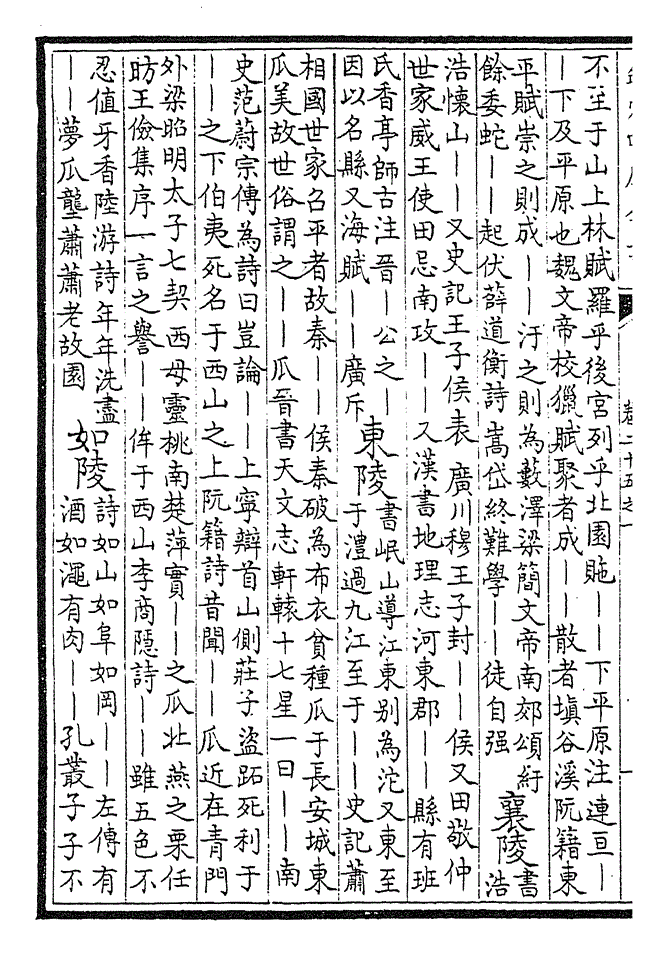 卷二十五之一
不至于山上林賦羅乎後宮列乎北園貤——下平原注連亘—
—下及平原也魏文帝校獵賦聚者成——散者塡谷溪阮籍東
平賦崇之則成——汙之則為藪澤梁簡文帝南郊頌紆
餘委蛇——起伏薛道衡詩嵩岱終難學——徒自强
襄陵
書
浩
浩懷山——又史記王子侯表廣川穆王子封——侯又田敬仲
世家威王使田忌南攻——又漢書地理志河東郡——縣有班
氏香亭師古注晉—公之—
因以名縣又海賦——廣斥
東陵
書岷山導江東别為沱又東至
于澧過九江至于——史記蕭
相國世家召平者故秦——侯秦破為布衣貧種瓜于長安城東
瓜美故世俗謂之——瓜晉書天文志軒轅十七星一曰——南
史范蔚宗傳為詩曰豈論——上寧辯首山側莊子盜跖死利于
——之下伯夷死名于西山之上阮籍詩昔聞——瓜近在青門
外梁昭明太子七契西母靈桃南楚萍實——之瓜北燕之栗任
昉王儉集序一言之譽——侔于西山李商隱詩——雖五色不
忍值牙香陸游詩年年洗盡
——夢瓜壟蕭蕭老故園
如陵
詩如山如阜如岡——左傳有
酒如澠有肉——孔叢子子不